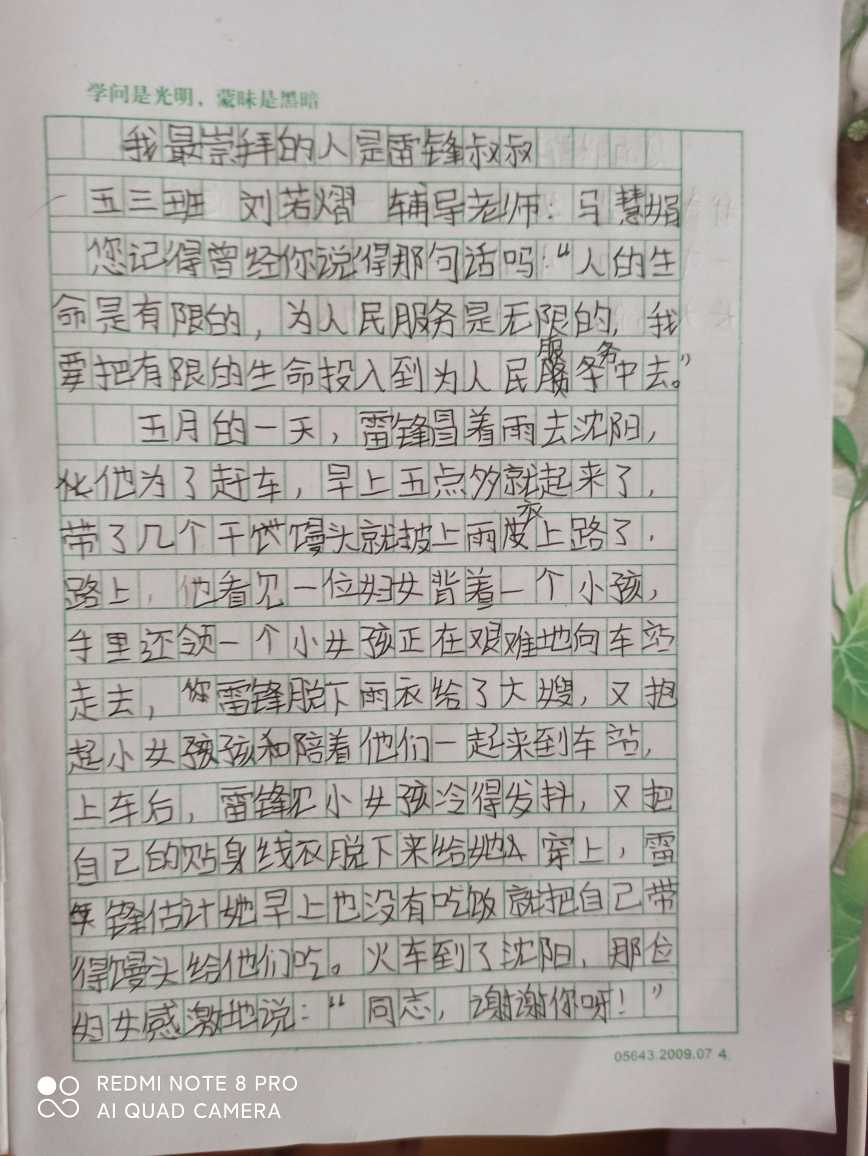 学问是光明，蒙昧是黑暗
我最崇拜的人是雷锋叔叔
五三班 刘若熠 辅导老师：马慧娟
您记得曾经你说得那句话吗：“人的生
命是有限的，为人民服务是无限的，我
要把有限的生命投入到为人民服务中去。”
五月的一天，雷锋冒着雨去沈阳，
他为了赶车，早上五点多就起来了，
带了几个干馒头就披上雨衣上路了，
路上，他看见一位妇女背着一个小孩，
手里还领一个小女孩正在艰难地向车站
走去，雷锋脱下雨衣给了大嫂，又抱
起小女孩孩和陪着他们一起来到车站，
上车后，雷锋见小女孩冷得发抖，又把
自己的贴身线衣脱下来给她穿上，雷
锋估计她早上也没有吃饭就把自己带
得馒头给他们吃。火车到了沈阳，那位
妇女感激地说：“同志，谢谢你呀！”
05643.2009.07 4.
REDMI NOTE 8 PRO
AI QUAD CAMERA